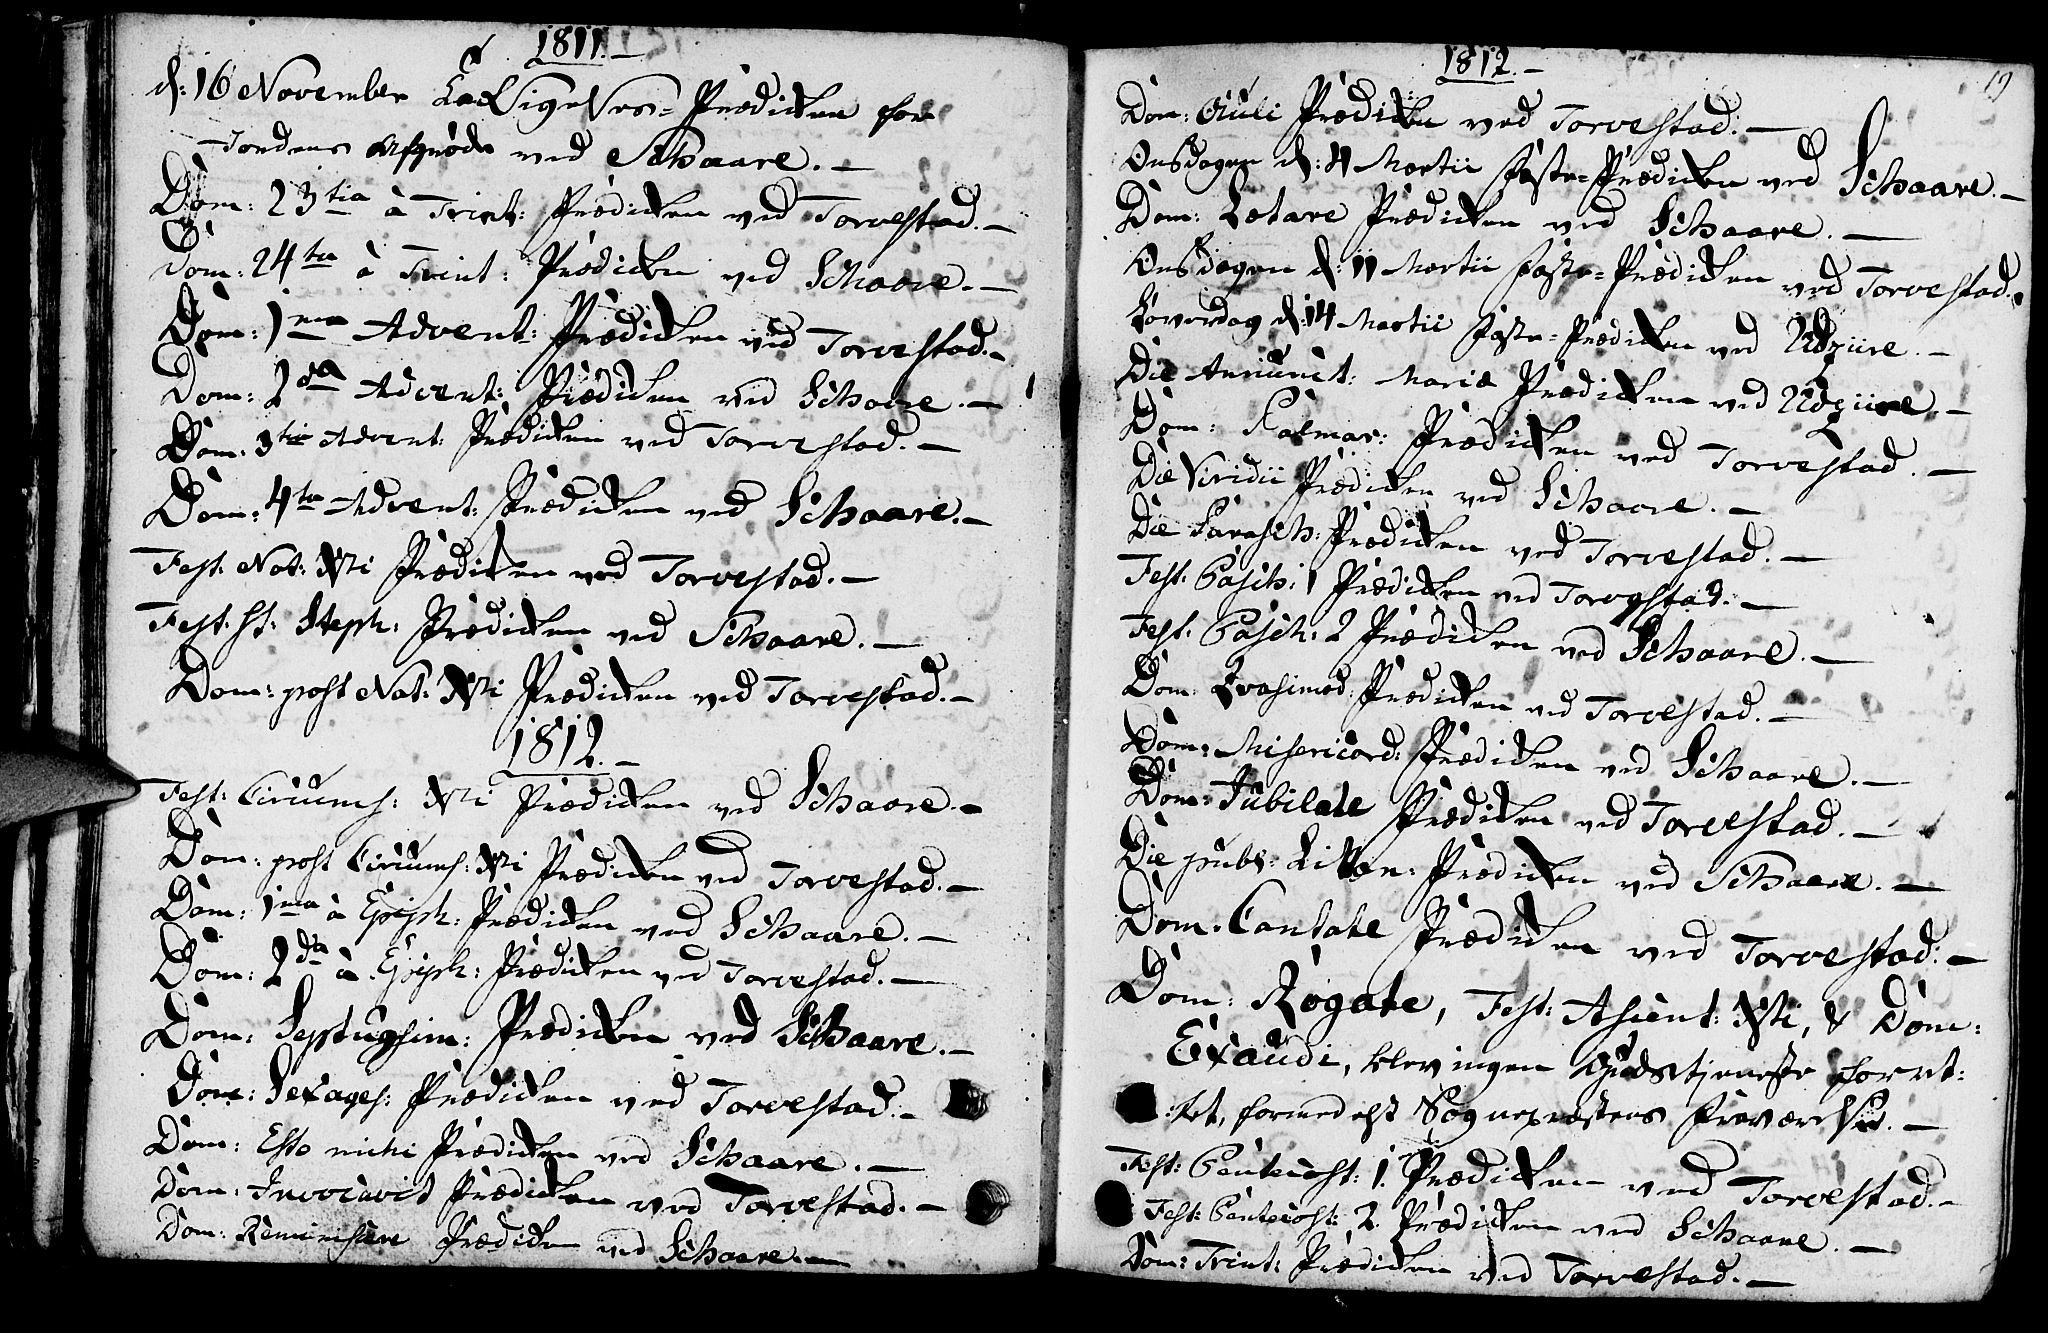 1811. —
d: 16 November Taksigelses-Prædicken for
Jordens Afgrøde ved Schaare. —
Dom: 23tia à Trint: Prædicken ved Torvestad. —
Dom: 24ta à Trint: Prædicken ved Schaare. —
Dom: 1ma Advent: Prædicken ved Torvestad. —
Dom: 2da Advent: Prædicken ved Schaare. —
Dom: 3tia Advent: Prædicken ved Torvestad. —
Dom: 4ta Advent: Prædicken ved Schaare. —
Fest: Nat: Xti Prædicken ved Torvestad. —
Fest: St: Steph: Prædicken ved Schaare. —
Dom: post Nat: Xti Prædicken ved Torvestad. —
1812. —
Fest: Circumc: Xti Prædicken ved Schaare. —
Dom: post Circumc: Xti Prædicken ved Torvestad. —
Dom: 1ma à Epiph: Prædicken ved Schaare. —
Dom: 2da à Epiph: Prædicken ved Torvestad. —
Dom: Septugsim: Prædicken ved Schaare. —
Dom: Sexages: Prædicken ved Torvestad. —
Dom: Esto michi Prædicken ved Schaare. —
Dom: Invocavit Prædicken ved Torvestad. —
Dom: Reminiscere Prædicken ved Schaare. —
1812. —
19
Dom: Oculi Prædicken ved Torvestad. —
Onsdagen d: 4 Martii Faste-Prædicken ved Schaare. —
Dom: Lætare Prædicken ved Schaare. —
Onsdagen d: 11 Martii Faste-Prædicken ved Torvestad.
Løverdag d: 14 Martii Faste-Prædicken ved Udziire. —
Die Annunct: Mariæ Prædicken ved Udziire. —
Dom: Palmar: Prædicken ved Torvestad. —
Die Viridii Prædicken ved Schaare. —
Die Parasch: Prædicken ved Torvestad. —
Fest: Pasch: 1 Prædicken ved Torvestad. —
Fest: Pasch: 2 Prædicken ved Schaare. —
Dom: Qvasimod: Prædicken ved Torvestad. —
Dom: Misericord: Prædicken ved Schaare. —
Dom: Jubilate Prædicken ved Torvestad. —
Die publ: Prædicken ved Schaare. —
Dom: Cantate Prædicken ved Torvestad. —
Dom: Rogate, Fest: Ascent: Xti, & Dom:
Exaudi, blev ingen Gudstjeneste forret-
:tet, formedelst Sognepræstens Fraværelse. —
Fest: Pentecost: 1. Prædicken ved Torvestad. —
Fest: Pentecost: 2. Prædicken ved Schaare. —
Dom: Trint: Prædicken ved Torvestad. —